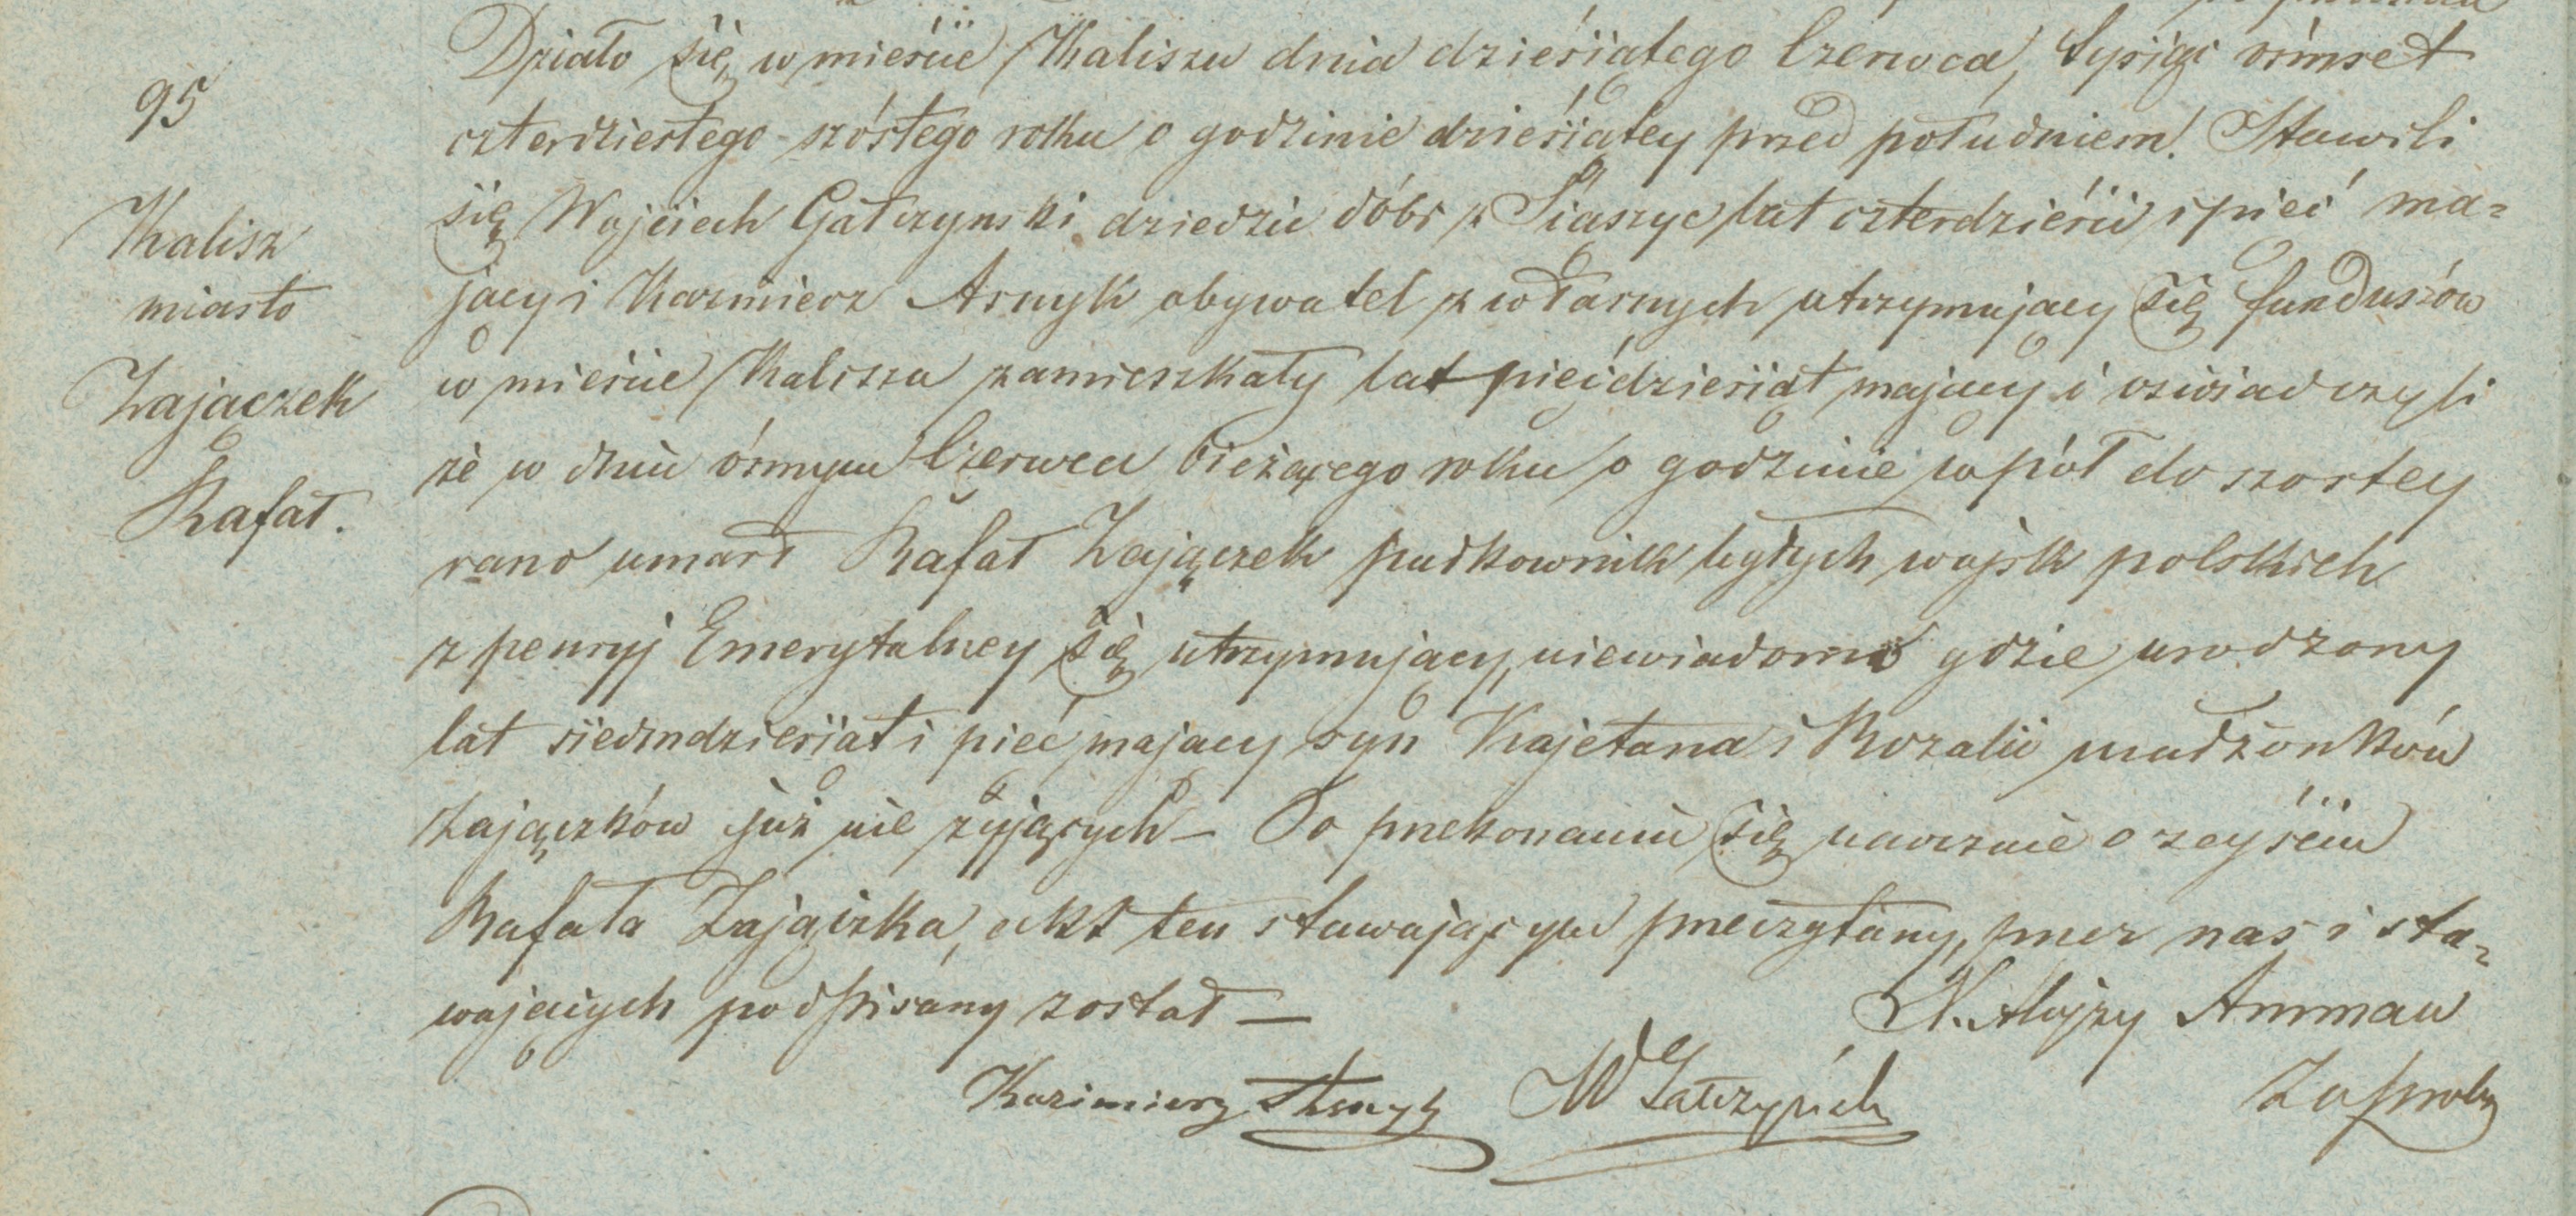 95
Kalisz
miasto
Zajączek
Rafał.
Działo się w mieście Kaliszu dnia dziesiątego Czerwca, tysiąc ośmset
czterdziestego szóstego roku o godzinie dziesiątey przed południem. Stawili
się Wojciech Gałczynski dziedzic dóbr z lat czterdzieści i pieć ma=
jacy i Kazmierz Asnyk obywatel z własnych utrzymujacy się funduszów
w mieście Kaliszu zamieszkały lat piećdziesiąt majacy i oświadczyli
że w dniu ósmym Czerwca bieżącego roku o godzinie wpół do szostey
rano umarł Rafał Zajączek pułkownik byłych wojsk polskich
z pensyj Emerytalney się utrzymujacy, niewiadomo gdzie urodzony
lat siedmdziesiat i pieć majacy syn Kajetana i Rozalii małżonków
Zajączków już nie żyjących – Po przekonaniu się naocznie o zeyściu
Rafała Zajączka, akt ten stawającym przeczytany, przez nas i sta=
wających podpisany został –
X. Alojzy Amman
Kazimierz Asnyk W Gałczyński